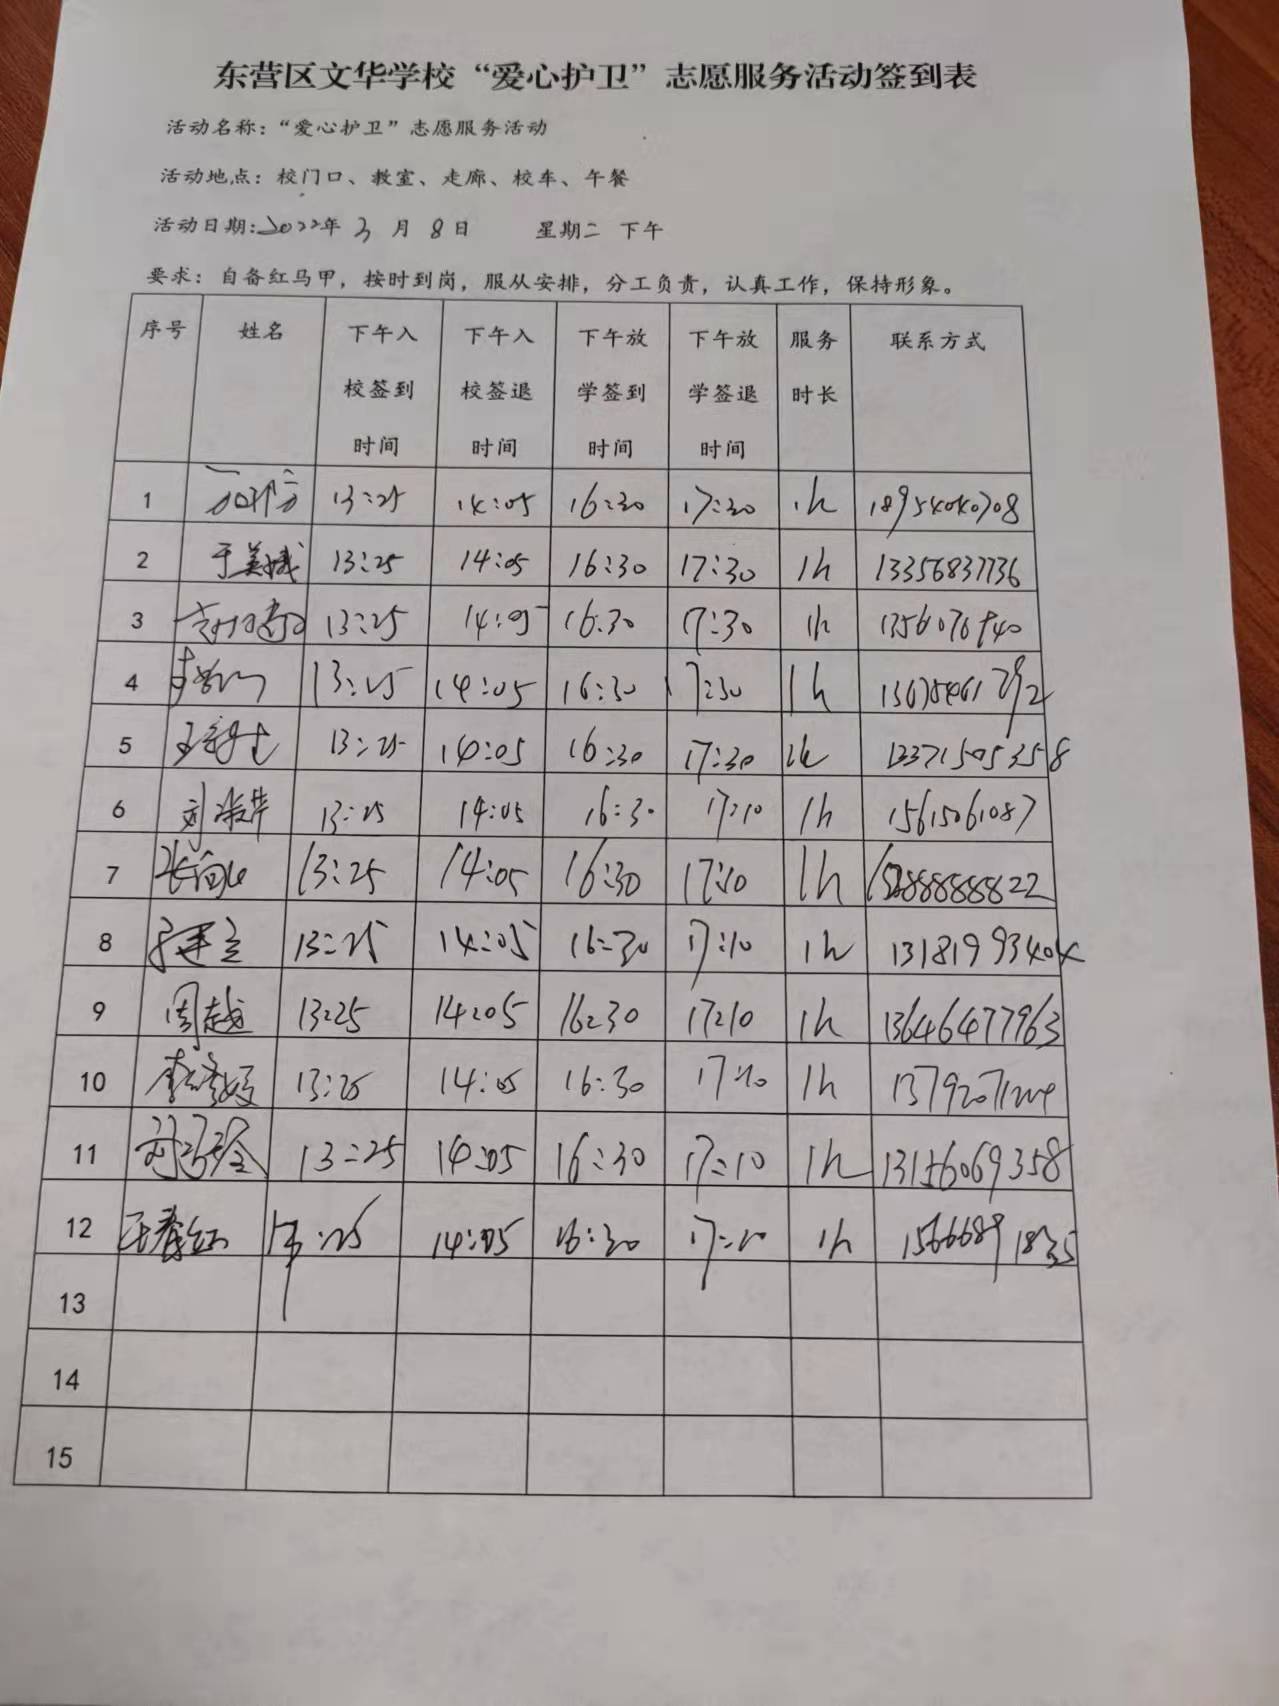 东营区文华学校“爱心护卫”志愿服务活动签到表
活动名称：“爱心护卫”志愿服务活动
活动地点：校门口、教室、走廊、校车、午餐
活动日期：2022年 3 月 8 日 星期二 下午
要求：自备红马甲，按时到岗，服从安排，分工负责，认真工作，保持形象。
序号 姓名 下午入校签到时间 下午入校签退时间 下午放学签到时间 下午放学签退时间 服务时长 联系方式
1 13:25 14:05 16:30 17:30 1h 18954040708
2 于美娥 13:25 14:05 16:30 17:30 1h 13356837736
3 13:25 14:05 16:30 17:30 1h
4 13:25 14:05 16:30 17:30 1h
5 13:25 14:05 16:30 17:30 1h 13371505358
6 刘淑华 13:25 14:05 16:30 17:10 1h 15615061087
7 13:25 14:05 16:30 17:10 1h
8 13:25 14:05 16:30 17:10 1h 13181993404
9 周越 13:25 14:05 16:30 17:10 1h 13646477963
10 13:25 14:05 16:30 17:10 1h
11 13:25 14:05 16:30 17:10 1h 13156069358
12 王春红 14:05 16:30 17:10 1h 15666891835
13
14
15